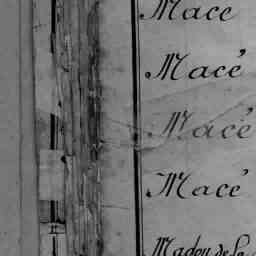 Macé
Macé
Macé
Macé
Madou de La